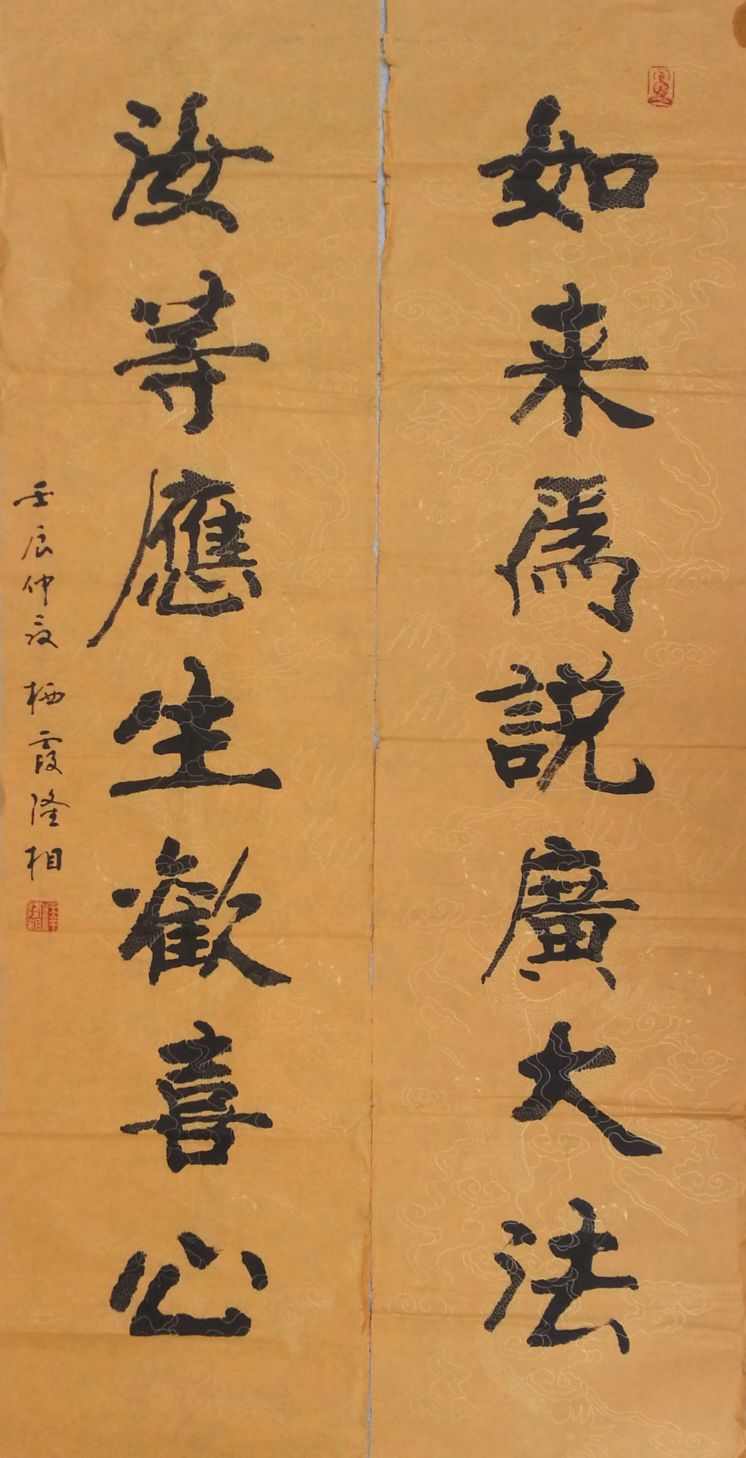 如来爲説廣大法
汝等應生歡喜心
壬辰仲夏栖霞隆相